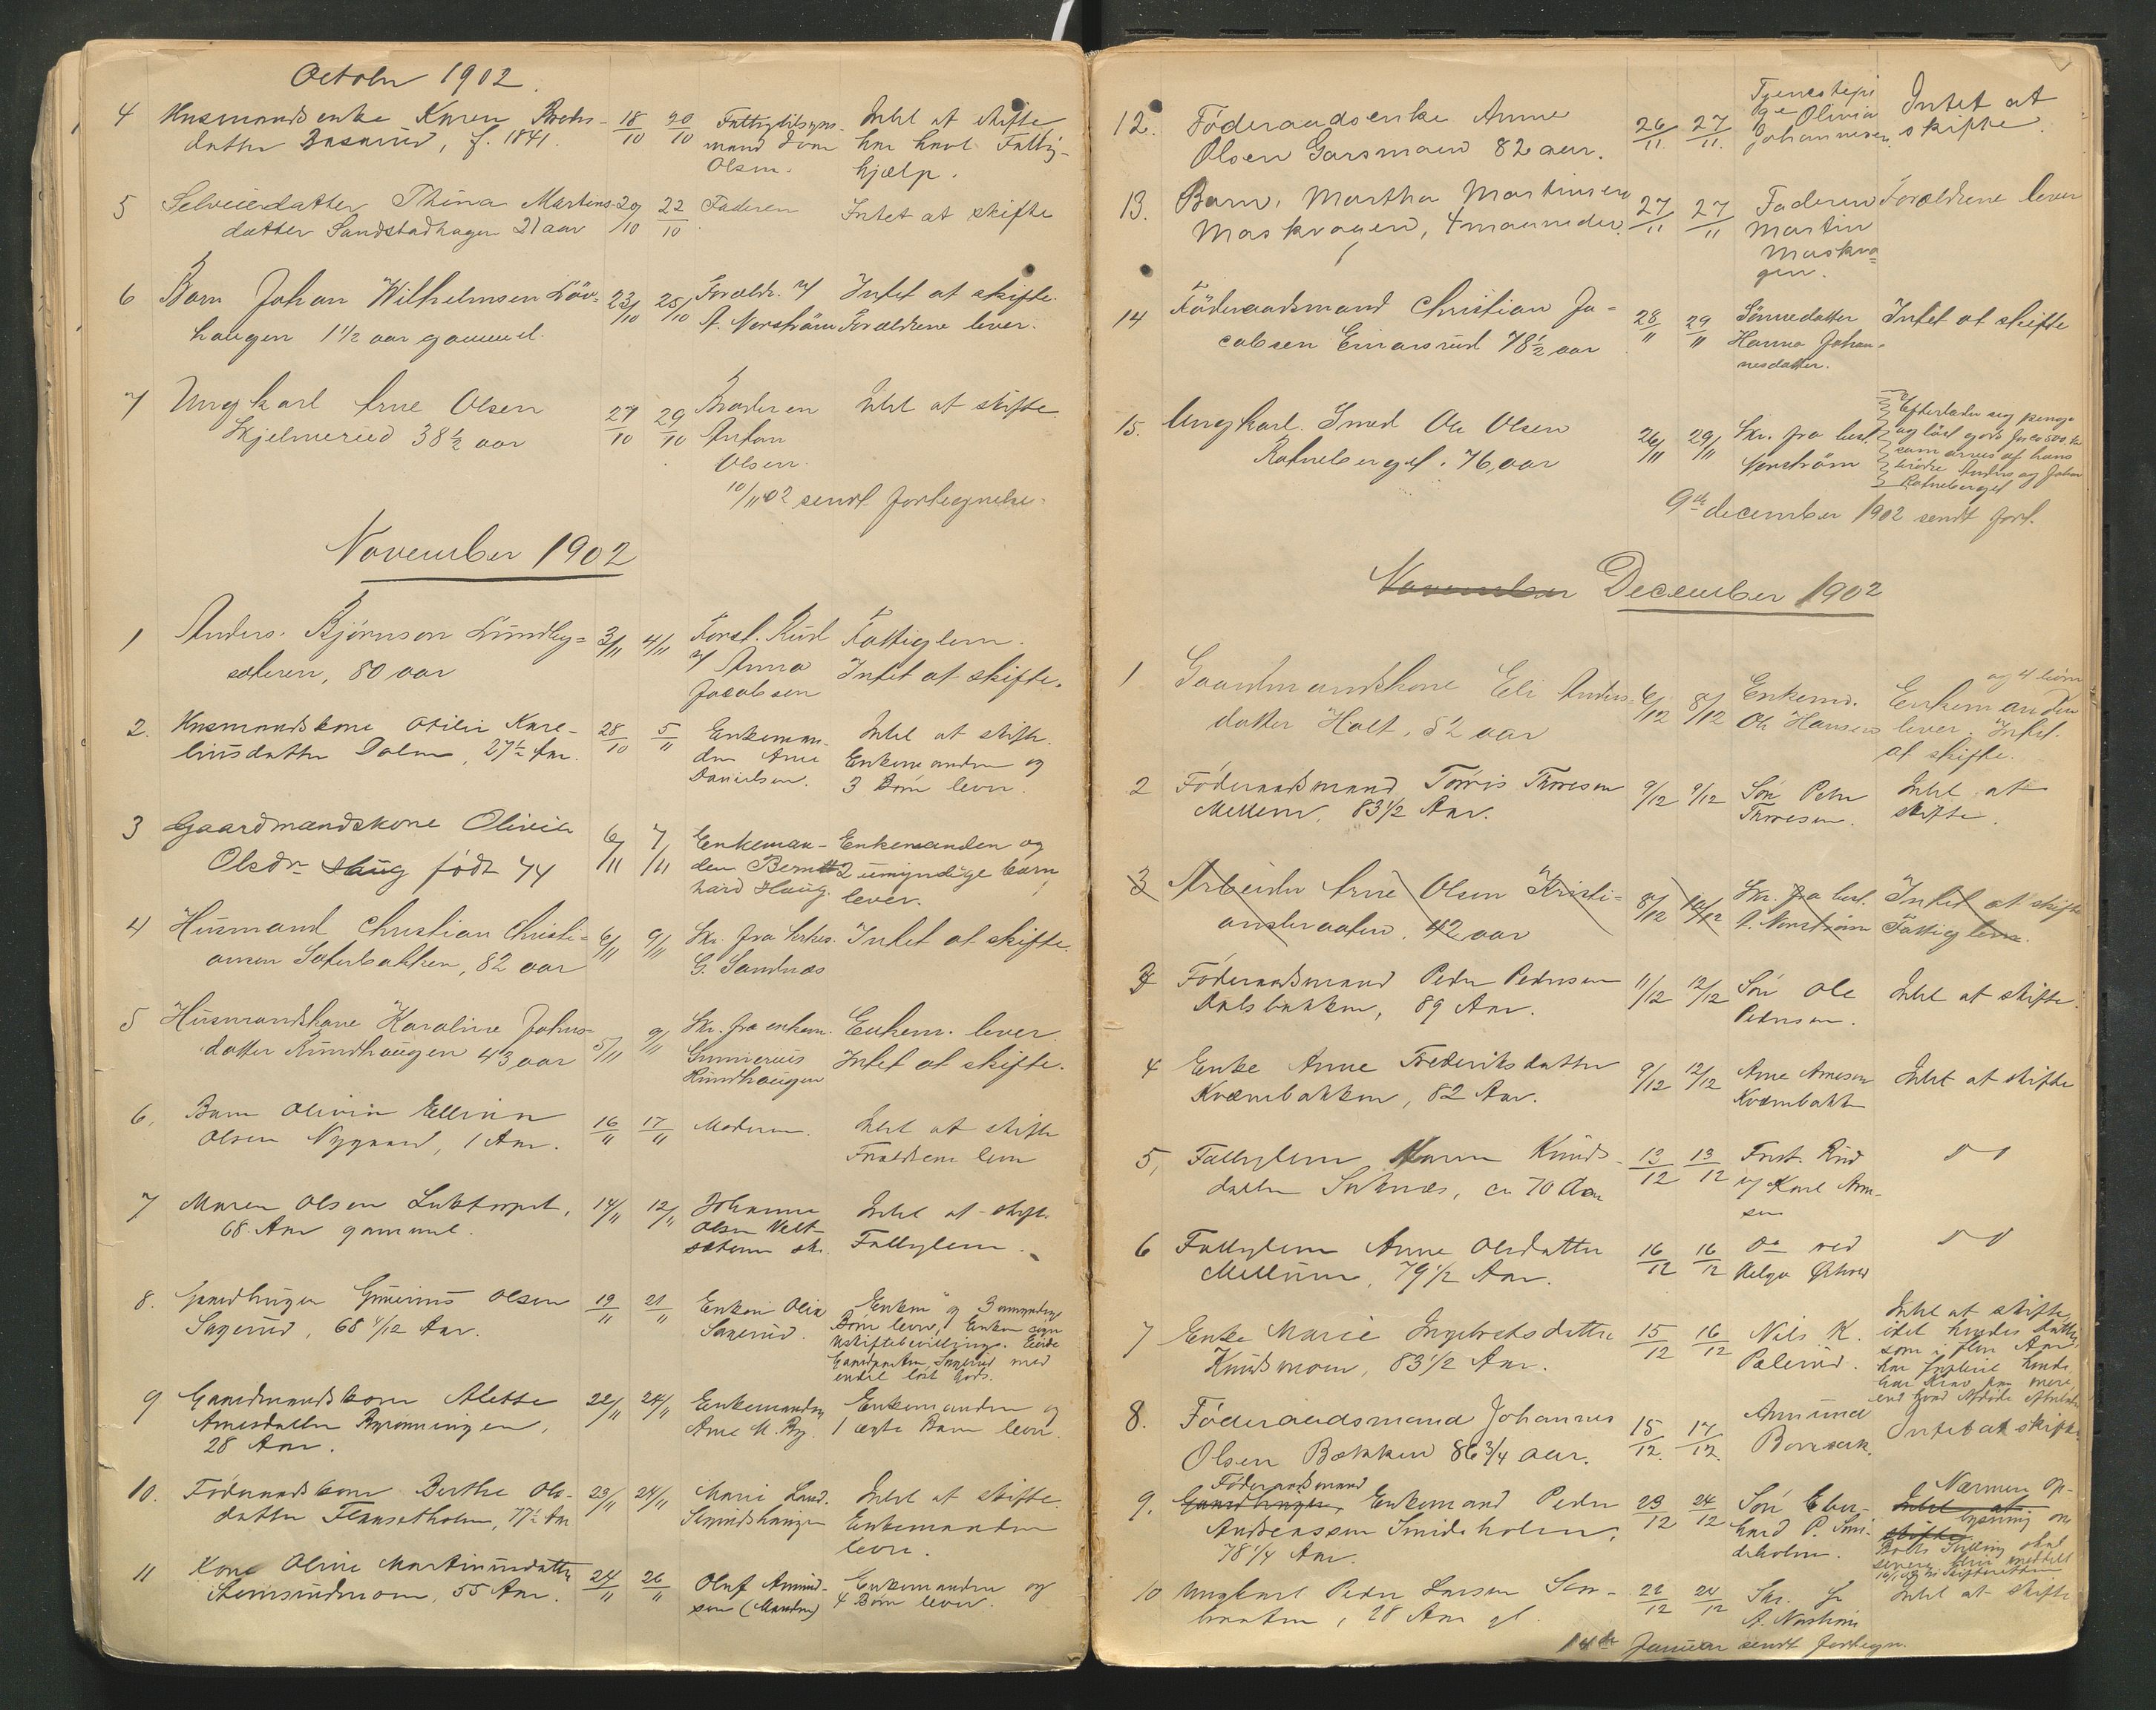 October 1902.
4 Husmandsenke Karen
datter f. 1841. 18/10 20/10 Fattigtilsyns-
mand Olsen. Intet at skifte
har havt Fattig-
hjælp.
5 Selveierdatter Thina Martins-
datter Sandstadhagen 21 aar 20/10 22/10 Faderen Intet at skifte
6 Barn Johan Wilhelmsen Löv-
haugen 1 1/2 aar gammel. 23/10 25/10 Forældr. v/
A. Norström Intet at skifte.
Forældrene lever.
7 Ungkarl Arne Olsen
Skjelmerud 38 1/2 aar 27/10 29/10 Broderen
Anton
Olsen. Intet at skifte
10/11 02 sendt fortegnelse.
November 1902
1 Anders Bjørnson Lundby-
sæteren, 80 aar 3/11 4/11 Forst. Rud
v/ Anna
Jacobsen Fattiglem.
Intet at skifte.
2. Husmandskone Otilie Kare-
liusdatter Dalen, 27 1/2 Aar. 28/10 5/11 Enkeman-
den Arne
Danielsen. Intet at skifte.
Enkemanden og
3 Børn lever.
3 Gaardmandskone Olivia
Olsdr Haug født 44 6/11 7/11 Enkeman-
den Bern-
hard Haug. Enkemanden og
2 umyndige barn
lever.
4 Husmand Christian Christi-
ansen Sæterbakken, 82 aar 6/11 9/11 Skr. fra
G. Sandnæs Intet at skifte.
5 Husmandskone Karoline Johns-
datter Rundhaugen 43 aar 5/11 9/11 Skr. fra enkem.
Gunnerius
Rundhaugen Enkem. lever.
Intet at skifte.
6. Barn Olivia Elliva
Olsen Nygaard, 1 Aar. 16/11 17/11 Moderen. Intet at skifte
Forældrene lever
7 Maren Olsen
68 Aar gammel. 14/11 12/11 Johanne
Olsen
skr. Intet at skifte
Fattiglem.
8. Gaardbruger Gunerius Olsen
Sagerud, 68 1/12 Aar. 19/11 21/11 Enken Olia
Sagerud. Enken og 3 umyndige
Børn lever, Enken
uskiftebevilling. Eiede
Gaardparten Sagerud med
endel løst Gods.
9 Gaardmandskone Alette
Arnesdatter Byrønningen,
28 Aar. 22/11 24/11 Enkemanden
Arne M. By. Enkemanden og
1 ægte Barn lever.
10. Føderaadskone Berthe Ols-
datter Flansetholm, 77 1/2 Aar 23/11 24/11 Marie Lund.
Intet at skifte.
Enkemanden
lever.
11 Kone Oline Martinusdatter
Stensrudmoen, 55 Aar. 24/11 26/11 Oluf Amund-
sen (Manden) Enkemanden og
4 Børn lever.
12. Föderaadsenke Anne
Olsen Garsmoen 82 aar. 26/11. 27/11. Tjenestepi
ge Olivia
Johannesen. Intet at
skifte.
13. Barn, Martha Martinsen
Moskvagen, 4 maaneder. 27/11 27/11 Faderen
Martin
Moskva-
gen. Forældrene lever
14 Föderaadsmand Christian Ja-
cobsen Einarsrud 78 1/2 aar 28/11 29/11 Sönnedatter
Hanna Johan-
nesdatter. Intet at skifte
15. Ungkarl. Smed Ole Olsen
Ratneberget. 76 aar 26/11 29/11 Skr. fra best.
Norström Efterlader sig penge
og löst gods for ca 500 kr
som arves af hans
brödre Anders og Johan
Ratneberget
9de december 1902 sendt fort.
November December 1902
1 Gaardmandskone Eli Anders-
datter Holt, 52 aar 6/12 8/12 Enkemd.
Ole Hansen og 4 börn
Enkemanden
lever. Intet
at skifte.
2 Føderaadsmand Torris Thoresen
Mellem, 83 1/2 Aar. 9/12 9/12 Søn Peter
Thoresen. Intet at
skifte.
3 Arbeider Arne Olsen Kristi-
ansbraaten, 42 aar 8/12 10/12 Skr. fra best.
A. Norström Intet at skifte
Fattiglem.
3 Føderaadsmand Peder Pedersen
Dalsbakken, 89 Aar. 11/12 12/12 Søn Ole
Pedersen. Intet at skifte.
4 Enke Anne Frederiksdatter
Kværnbakken, 82 Aar. 9/12 12/12 Arne Arnesen
Kværnbakk Intet at skifte
5, Fattiglem Karen Knuds-
datter Sætnæs, ca 70 Aar 13/12 13/12 Forst. Rud
v/ Karl Arne-
sen
6 Fattiglem Anne Olsdatter
Mellum, 79 1/2 Aar. 16/12 16/12 Do ved
Helga
7 Enke Marie Ingebretsdatter
Knudsmoen, 83 1/2 Aar. 15/12 16/12 Nils K.
Pålerud. Intet at skifte,
idet hendes datter,
som i flere Aar
har
har Krav paa mere
end hvad Afdøde efterlader
8. Föderaadsmand Johannes
Olsen Bakken 86 3/4 aar. 15/12. 17/12. Amund
Intet at skifte.
9. Føderaadsmand
Gaardbruger, Enkemand Peder
Andreassen Smidsholen,
78 1/4 Aar. 23/12 24/12 Søn Eber-
hard P. Smi-
dsholen. Nærmere Op-
Intet at lysning om
skifte
Boets Stilling skal
senere blive meddelt
Skifteretten
10 Ungkarl Peder Larsen
braaten, 28 Aar gl. 22/12 24/12 Skr. fr
A. Norström Intet at skifte
14de Januar sendt fortegn.